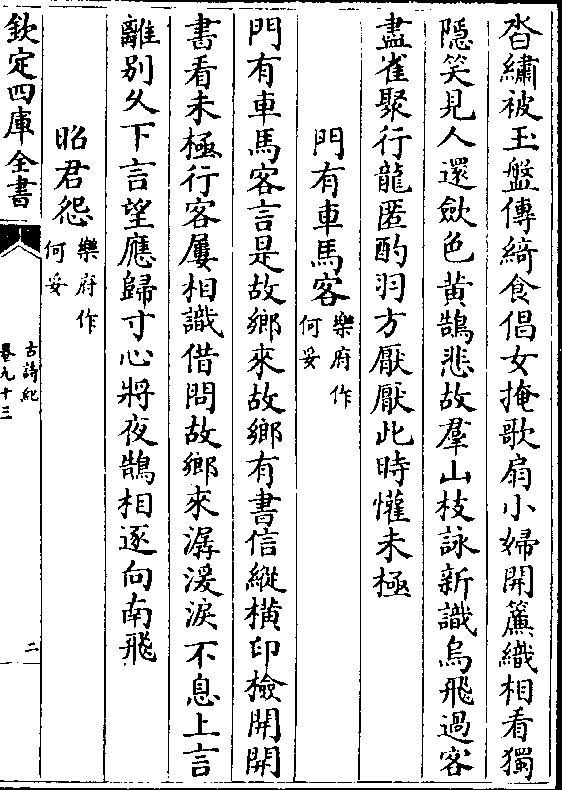 沓繡被玉盤傳綺食倡女掩歌扇小婦開簾織相看獨
隠笑見人還斂色黄鵠悲故羣山枝詠新識烏飛過客
盡雀聚行龍匿酌羽方厭厭此時懽未極
門有車馬客樂府作何妥
門有車馬客言是故鄉來故鄉有書信縱橫印檢開開
書看未極行客屢相識借問故鄉來潺湲淚不息上言
離别久下言望應歸寸心將夜鵲相逐向南飛
昭君怨樂府作何妥
欽定四庫全書
古詩紀
卷九十三
二